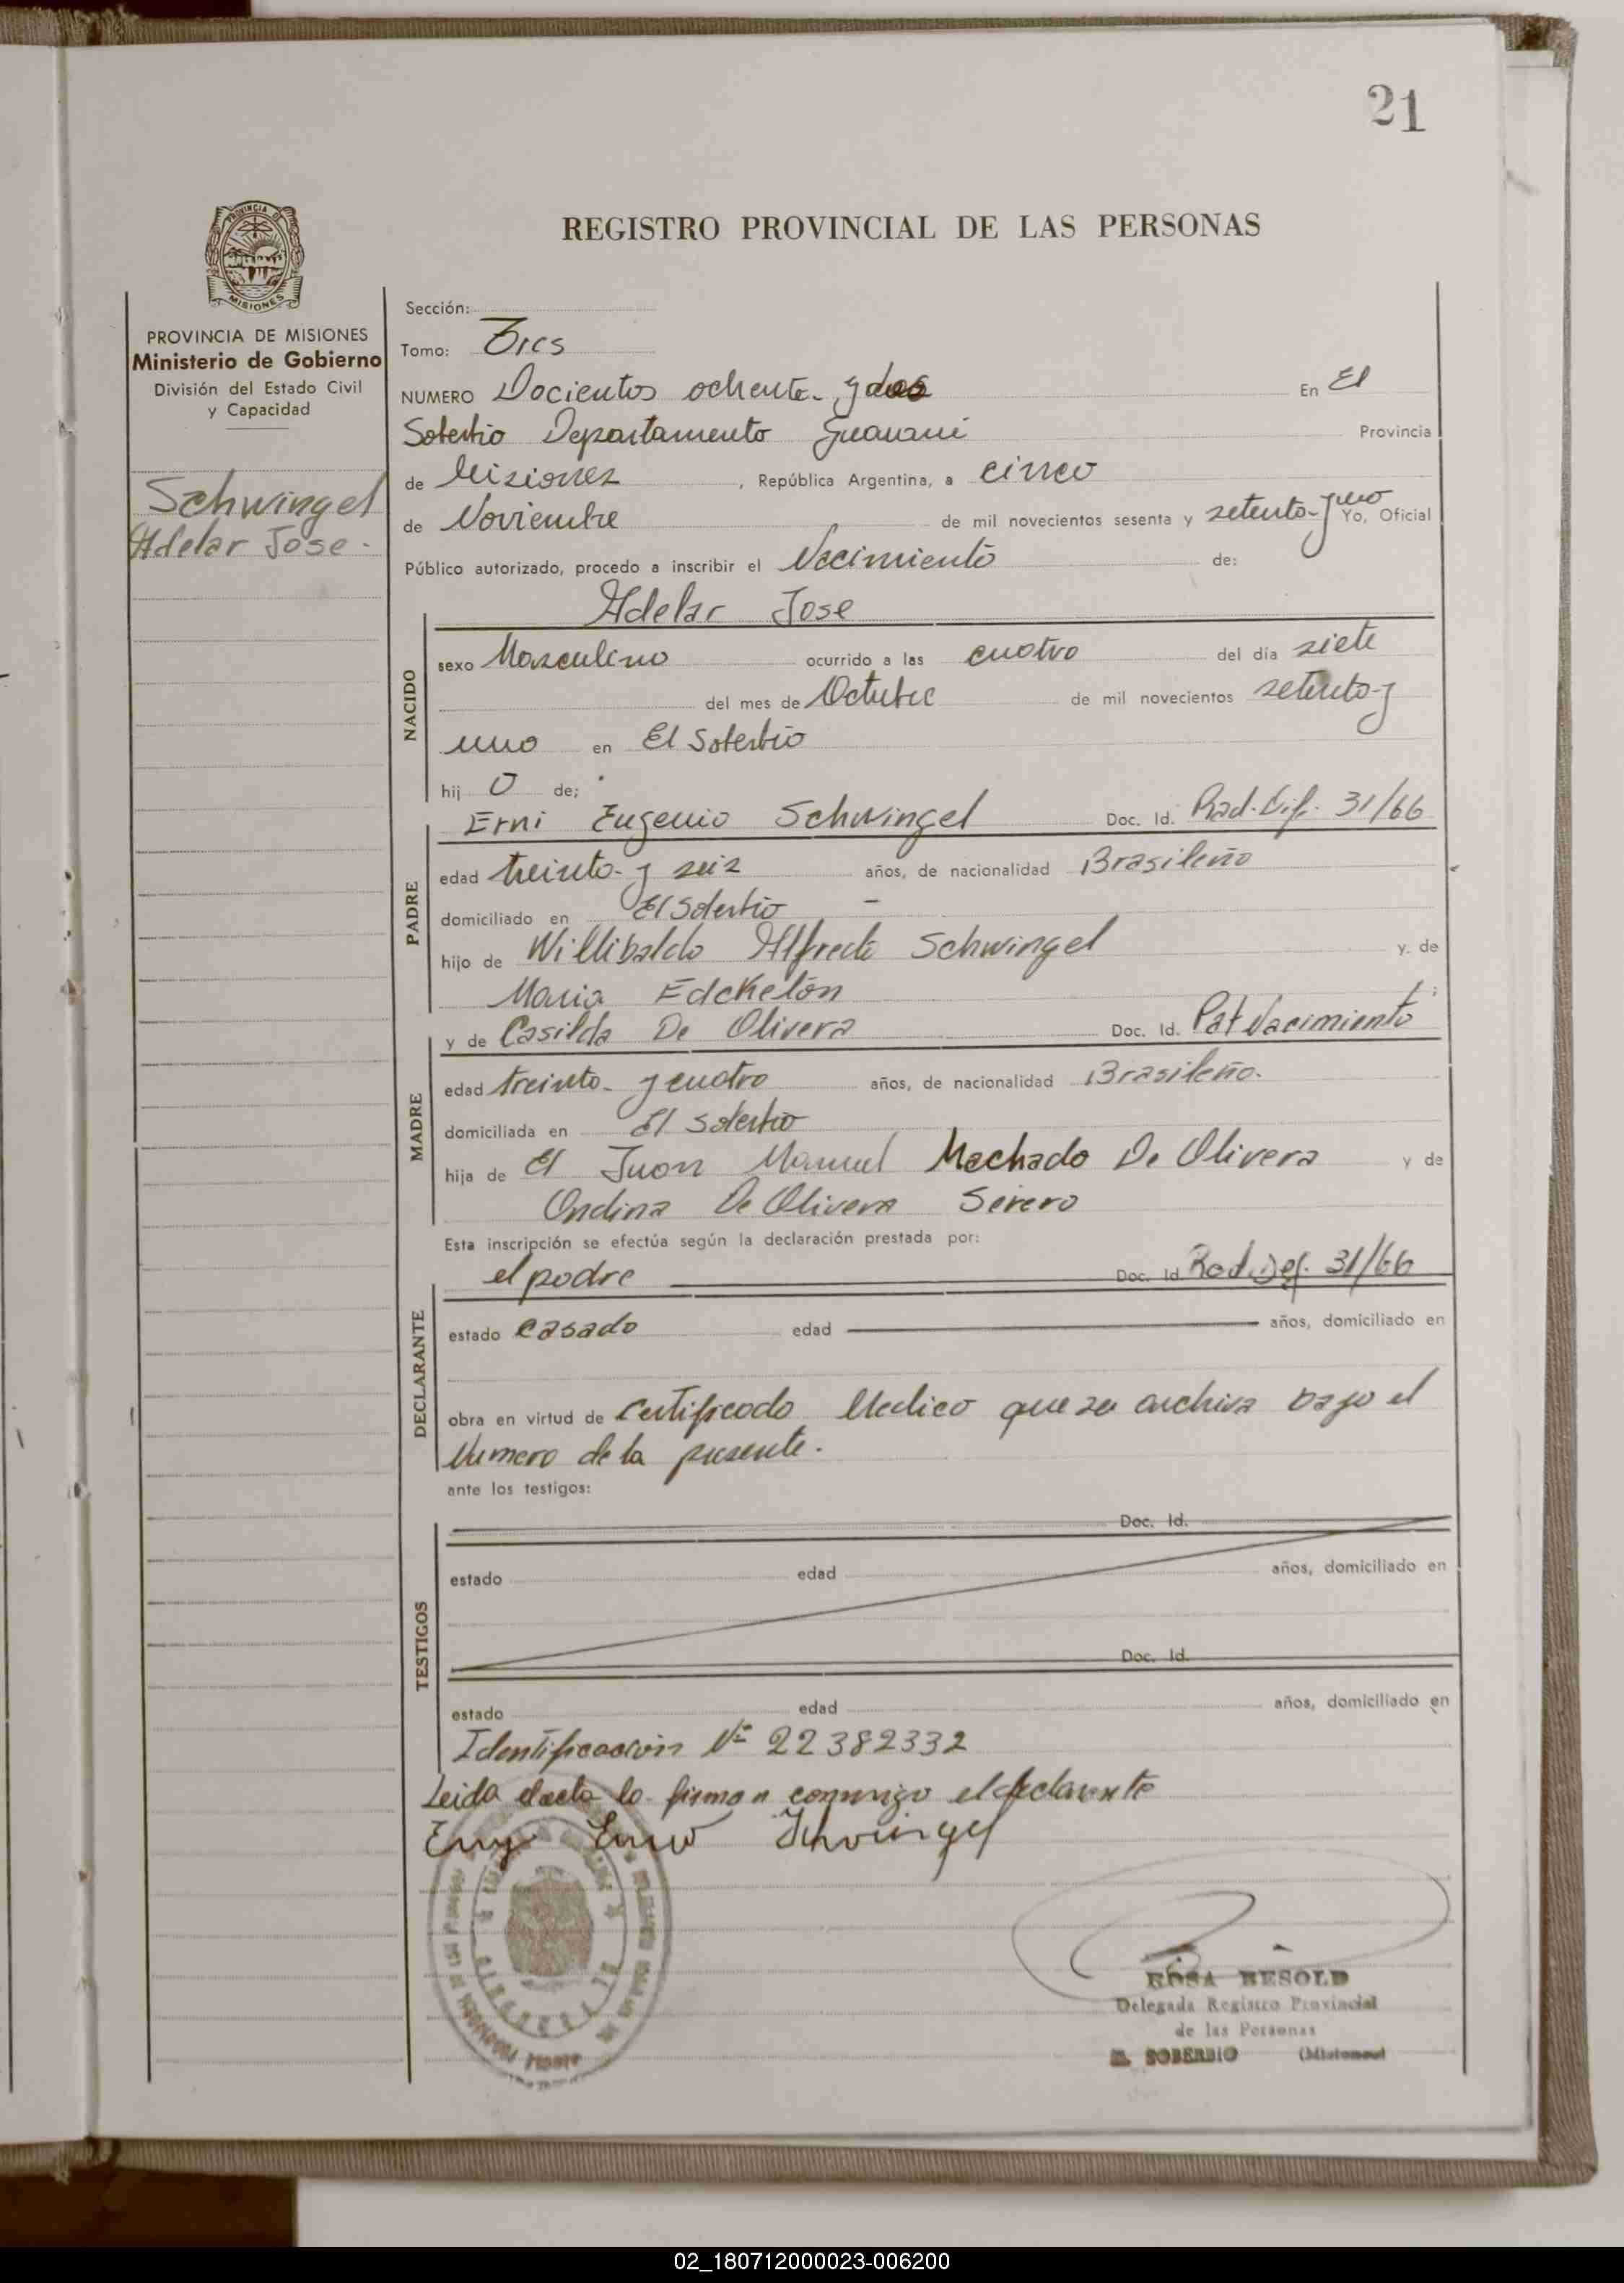 21
PROVINCIA DE
MISIONES
REGISTRO PROVINCIAL DE LAS PERSONAS
PROVINCIA DE MISIONES
Ministerio de Gobierno
División del Estado Civil
y Capacidad
Schwingel
Adelar Jose.
Sección:
Tomo: Tres
NUMERO Docientos ochenta y dos En El
Soberbio Departamento Guarani Provincia
de Misiones, República Argentina, a cinco
de Noviembre de mil novecientos sesenta y setenta y uno Yo, Oficial
Público autorizado, procedo a inscribir el Nacimiento de:
Adelar Jose
NACIDO
sexo Masculino ocurrido a las cuatro del día siete
del mes de Octubre de mil novecientos setenta y
uno en El Soberbio
hij o de:
Erni Eugenio Schwingel Doc. Id. Rad. Def. 31/66
PADRE
edad treinta y seis años, de nacionalidad Brasileño
domiciliado en El Soberbio
hijo de Willibaldo Alfredo Schwingel y de
Maria Edckelön
y de Casilda De Olivera Doc. Id. Pat Nacimiento
MADRE
edad treinta y cuatro años, de nacionalidad Brasileño.
domiciliada en El Soberbio
hija de El Juan Manuel Machado De Olivera y de
Ondina De Olivera Severo
Esta inscripción se efectúa según la declaración prestada por:
el padre Doc. Id. Rad. Def. 31/66
DECLARANTE
estado casado edad años, domiciliado en
obra en virtud de Certificado Medico que se archiva bajo el
Numero de la presente.
ante los testigos:
Doc. Id.
TESTIGOS
estado edad años, domiciliado en
Doc. Id.
estado edad años, domiciliado en
Identificacion Nº 22382332
Leida el acta lo firman conmigo el declarante
Schwingel
ROSA BESOLD
Delegada Registro Provincial
de las Personas
EL SOBERBIO (Misiones)
02_180712000023-006200